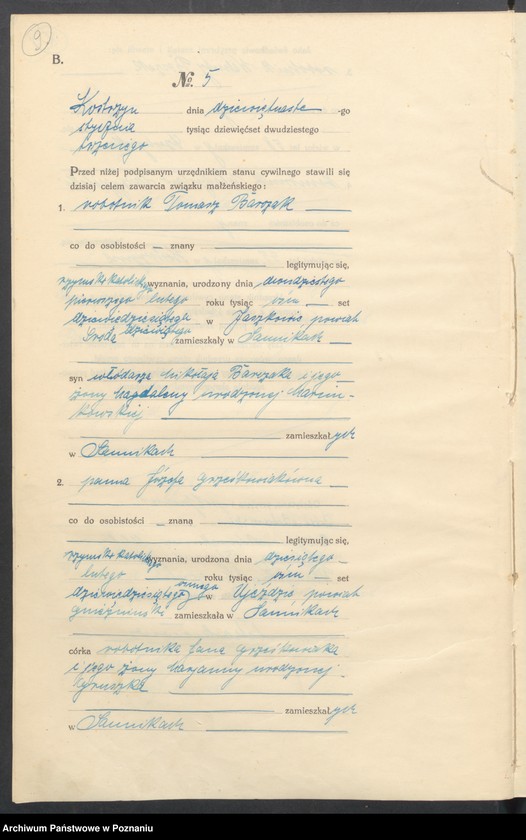 9
B.
№ 5
Kostrzyn dnia dziewiętnaste -go
stycznia tysiąc dziewięćset dwudziestego
trzeciego
Przed niżej podpisanym urzędnikiem stanu cywilnego stawili się
dzisiaj celem zawarcia związku małżeńskiego:
1. robotnik Tomasz Barczak
co do osobistości – znany
legitymując się,
rzymsko katolickiego wyznania, urodzony dnia dwudziestego
pierwszego lutego roku tysiąc ośm – set
dziewięćdziesiątego w Jaszkowie powiat
Środa dziewiątego zamieszkały w Sannikach
syn włodarza Mikołaja Barczaka i jego
żony Magdaleny urodzonej Marcin-
kowskiej
zamieszkałych
w Sannikach
2. panna Józefa Grześkowiakówna
co do osobistości – znana
legitymując się,
rzymsko katolickiego wyznania, urodzona dnia dziesiątego
lutego roku tysiąc ośm – set
dziewięćdziesiątego ósmego w Ujeździe powiat
gnieźnieński zamieszkała w Sannikach
córka robotnika Jana Grześkowiaka
i jego żony Marjanny urodzonej
Gruszka
zamieszkałych
w Sannikach
Archiwum Państwowe w Poznaniu